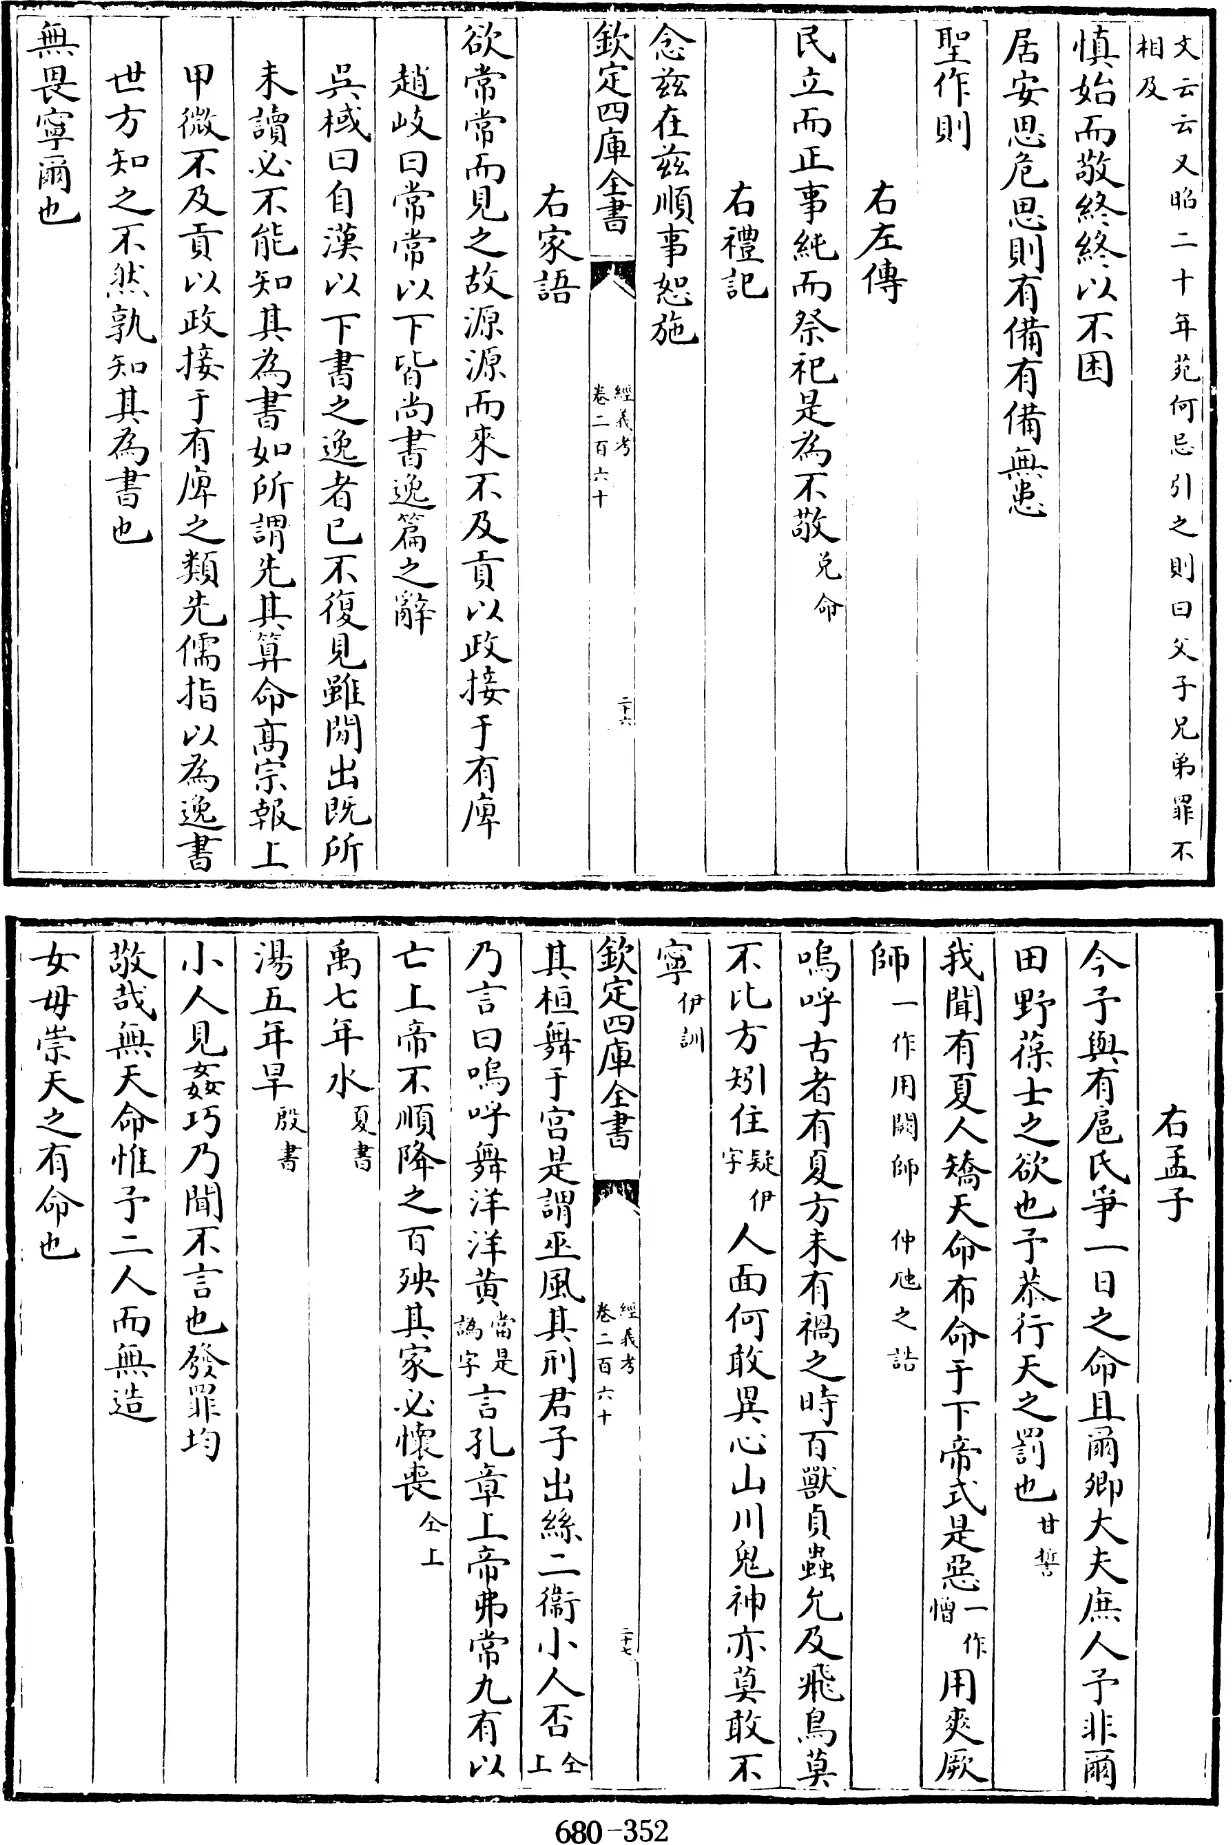 文云云又昭二十年苑何忌引之則曰父子兄弟罪不
相及
慎始而敬終終以不困
居安思危思則有備有備無患
聖作則
右左傳
民立而正事純而祭祀是為不敬兑命
右禮記
念兹在兹順事恕施
欽定四庫全書
經義考
卷二百六十
二十六
右家語
欲常常而見之故源源而來不及貢以政接于有庳
趙岐曰常常以下皆尚書逸篇之辭
吳棫曰自漢以下書之逸者已不復見雖閒出既所
未讀必不能知其為書如所謂先其算命高宗報上
甲微不及貢以政接于有庳之類先儒指以為逸書
世方知之不然孰知其為書也
無畏寧爾也
右孟子
今予與有扈氏爭一日之命且爾卿大夫庶人予非爾
田野葆士之欲也予恭行天之罰也甘誓
我聞有夏人矯天命布命于下帝式是惡一作憎用爽厥
師一作用闕師 仲虺之誥
嗚呼古者有夏方未有禍之時百獸貞蟲允及飛鳥莫
不比方矧住疑字伊人面何敢異心山川鬼神亦莫敢不
寧伊訓
欽定四庫全書
經義考
卷二百六十
二十七
其桓舞于宫是謂巫風其刑君子出絲二衞小人否仝上
乃言曰嗚呼舞洋洋黄當是譌字言孔章上帝弗常九有以
亡上帝不順降之百殃其家必懷喪仝上
禹七年水夏書
湯五年旱殷書
小人見姦巧乃聞不言也發罪均
敬哉無天命惟予二人而無造
女毋崇天之有命也
680-352